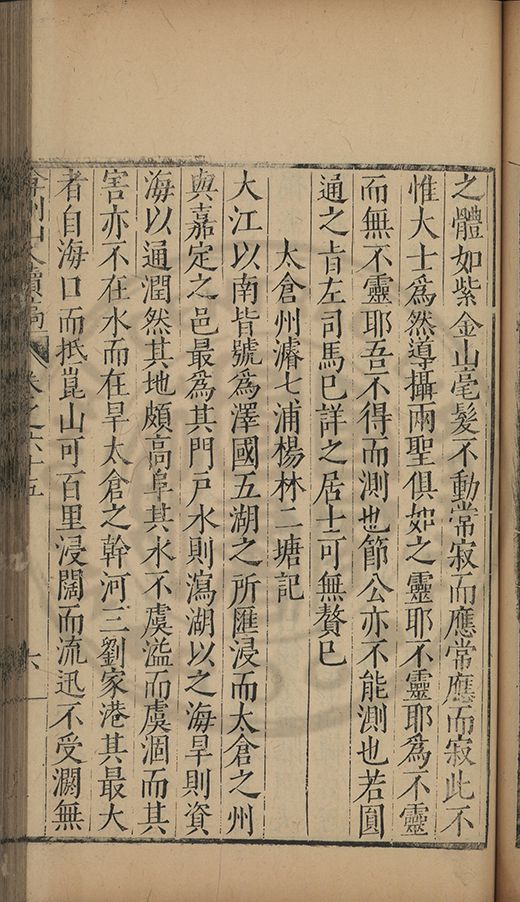 之體如紫金山毫髮不動常寂而應常應而寂此不
惟大士爲然導攝兩聖俱如之靈耶不靈耶爲不靈
而無不靈耶吾不得而測也節公亦不能測也若圓
通之旨左司馬已詳之居士可無贅已
太倉州濬七浦楊林二塘記
大江以南皆號爲澤國五湖之所匯浸而太倉之州
與嘉定之邑最爲其門戶水則瀉湖以之海旱則資
海以通潤然其地頗高阜其水不虞溢而虞涸而其
害亦不在水而在旱太倉之幹河三劉家港其最大
者自海口而抵崑山可百里浸闊而流迅不受瀾無
弇州山人續稿 卷之六十五 六